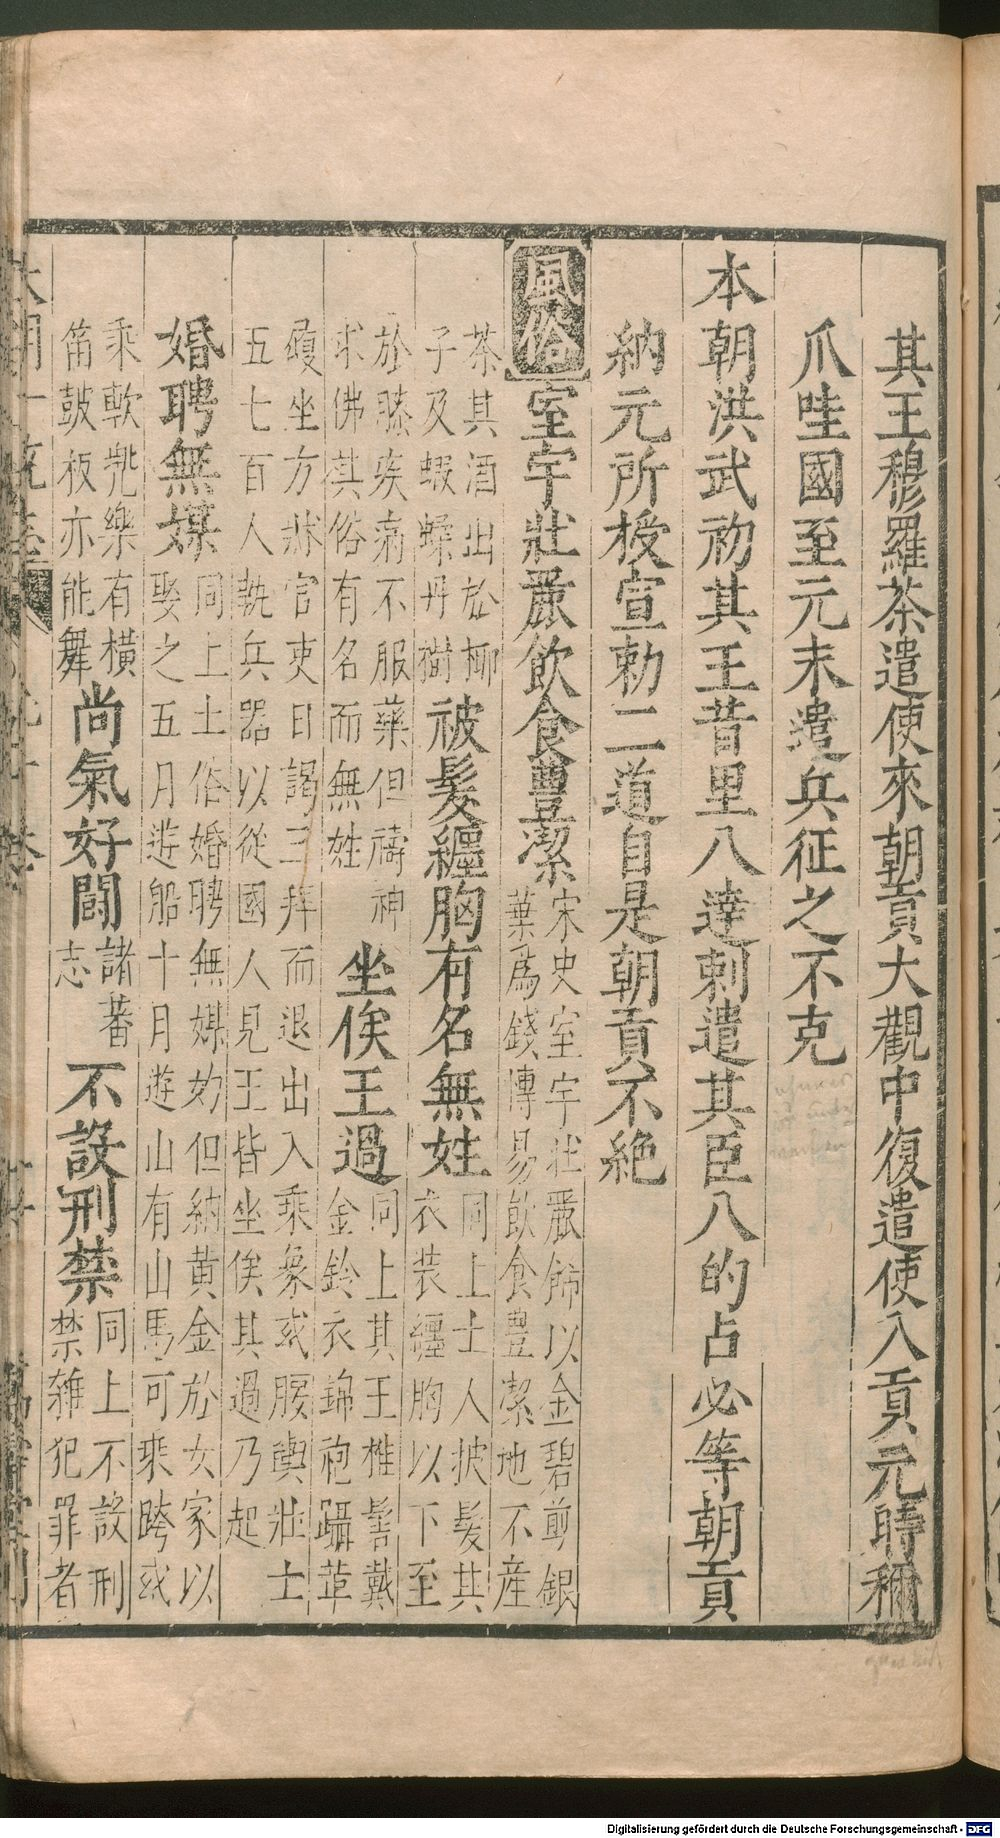 其王穆羅茶遣使來朝貢大觀中復遣使入貢元時稱
爪哇國至元末遣兵征之不克
本朝洪武初其王昔里八達剌遣其臣八的占必等朝貢
納元所授宣勅二道自是朝貢不絶
風俗室宇壯麗飲食豊潔
宋史室宇壯麗飾以金碧剪銀
葉爲錢愽易飲食豊潔地不産
茶其酒出於椰
子及蝦蝚丹樹
被髮纏胸有名無姓
同上土人披髮其
衣装纏胸以下至
於膝疾病不服藥但禱神
求佛其俗有名而無姓
坐俟王過
同上其王椎髻戴
金鈴衣錦袍躡革
履坐方牀官吏日謁三拜而退出入乘象或腰輿壯士
五七百人執兵器以從國人見王皆坐俟其過乃起
婚聘無媒
同上土俗婚聘無媒妁但納黄金於女家以
娶之五月遊船十月遊山有山馬可乘跨或
乘軟兠樂有横
笛鼓板亦能舞
尚氣好鬪
諸蕃
志
不設刑禁
同上不設刑
禁雜犯罪者
Digitalisierung gefördert durch die Deutsche Forschungsgemeinschaft - DFG